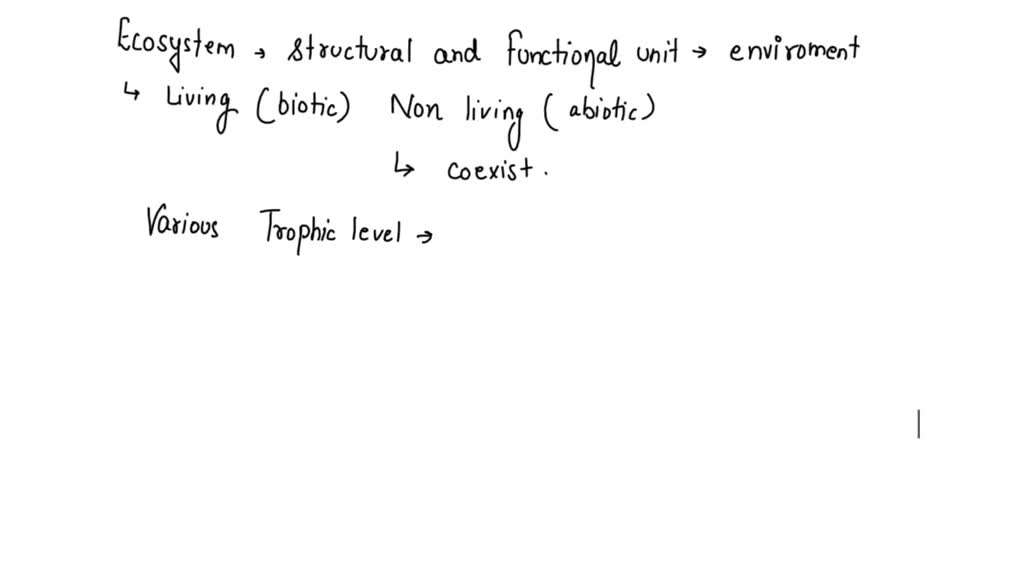 Ecosystem → structural and functional unit → enviroment
↳ Living (biotic) Non living (abiotic)
↳ coexist.
Various Trophic level →